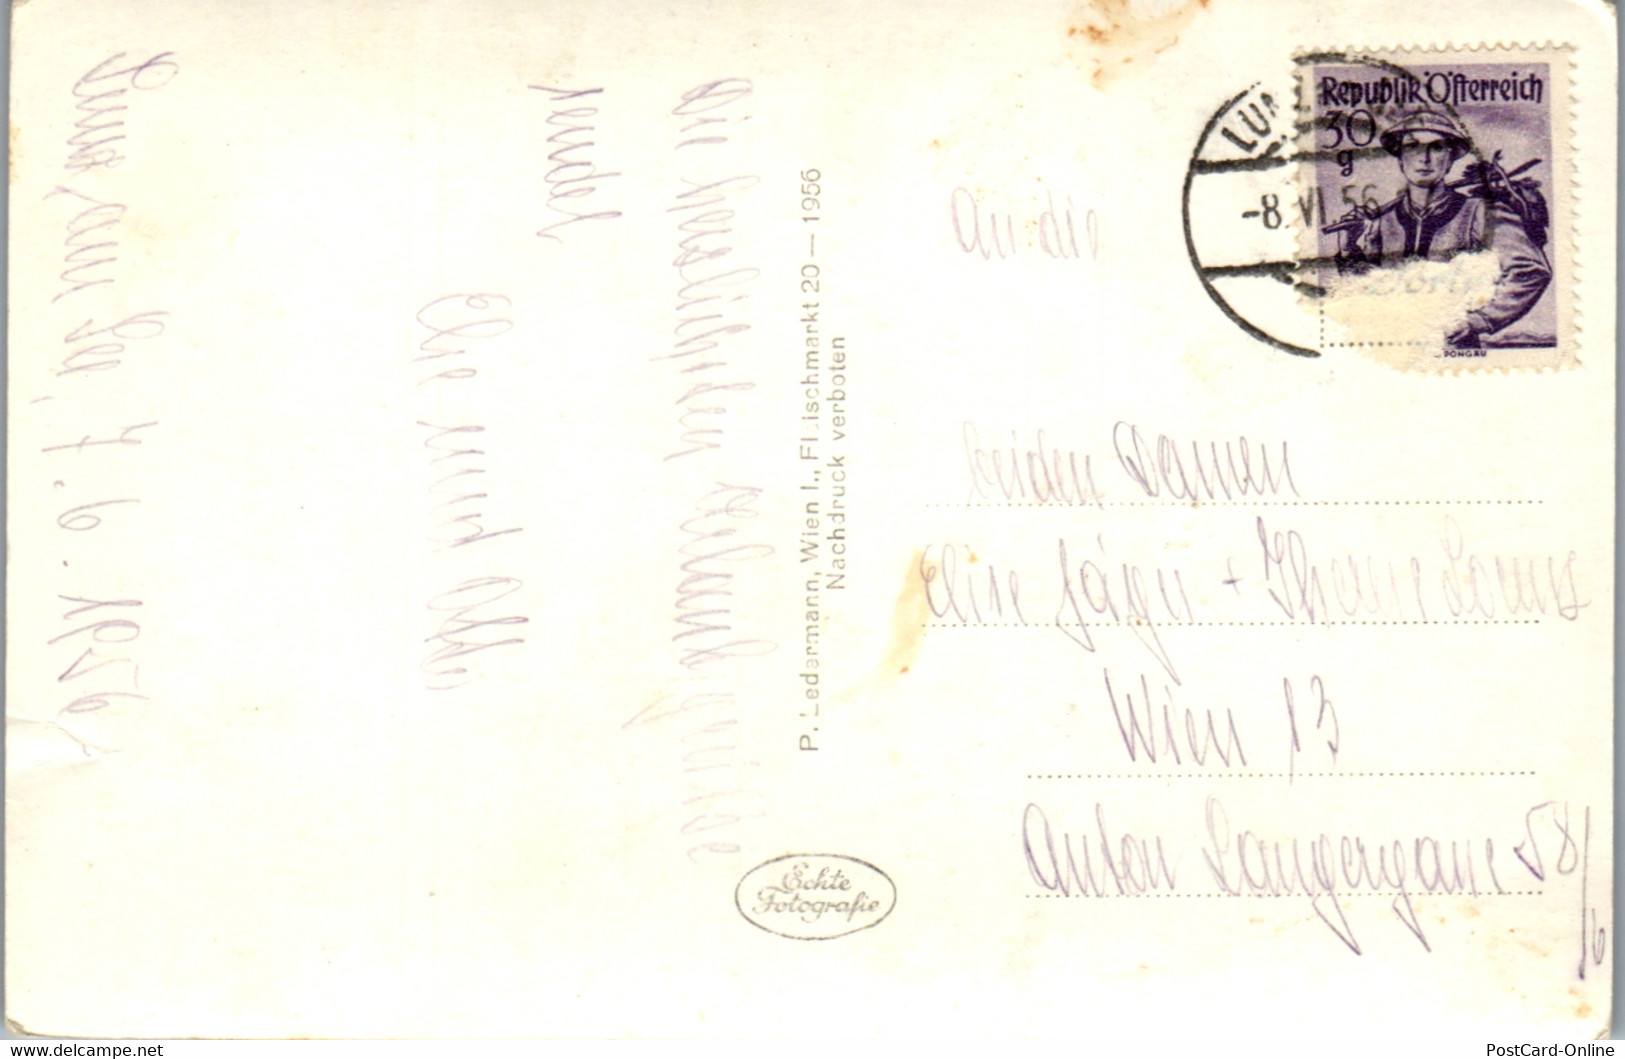 Lunz am See, 7. 6. 1956
Die herzlichsten Urlaubsgrüße
sendet
Else und Otto
P. Ledermann, Wien I., Fleischmarkt 20 — 1956
Nachdruck verboten
Echte
Fotografie
Republik Österreich
30
g
PONGAU
LUNZ
-8. VI. 56
An die
beiden Damen
Elise Jäger +
Wien 13
Anton Langergasse 58/6
PostCard-Online
www.delcampe.net
PostCard-Online